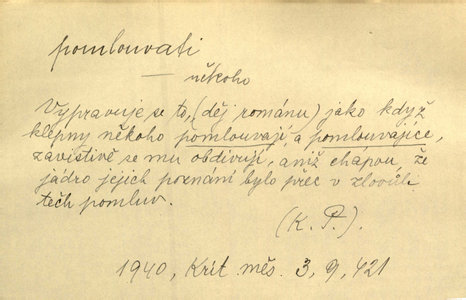 pomlouvati
— někoho
Vypravuje se to, (děj románu) jako když
klepny někoho pomlouvají, a pomlouvajíce,
závistivě se mu obdivují, aniž chápou, že
jádro jejich poznání bylo přec v zlovůli
těch pomluv.
(K. P.).
1940, Krit. měs. 3, 9, 421